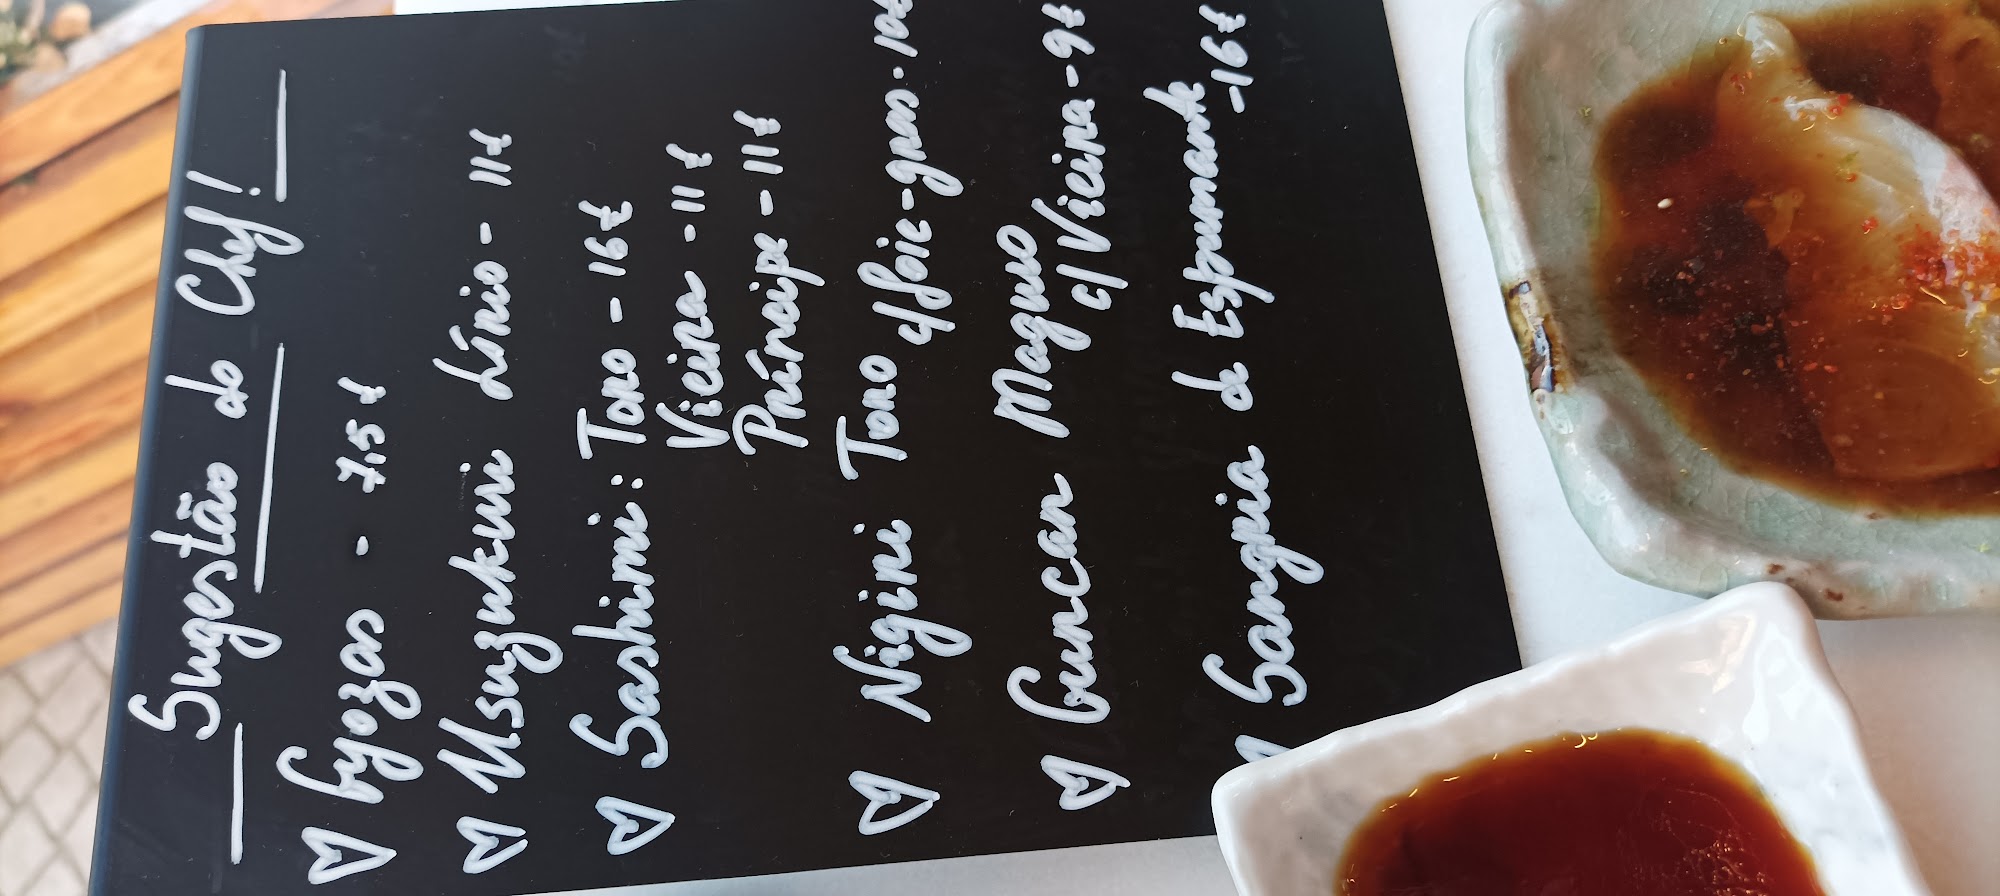 Sugestão do Chef!
Gyozas - 7,5€
Usuzukuri Lírio - 11€
Sashimi: Toro - 16€
Vieira - 11€
Príncipe - 11€
Nigiri Toro c/foie-gras - 10€
Guncan Maguro
c/Vieira - 9€
Sangria de Espumante
- 16€